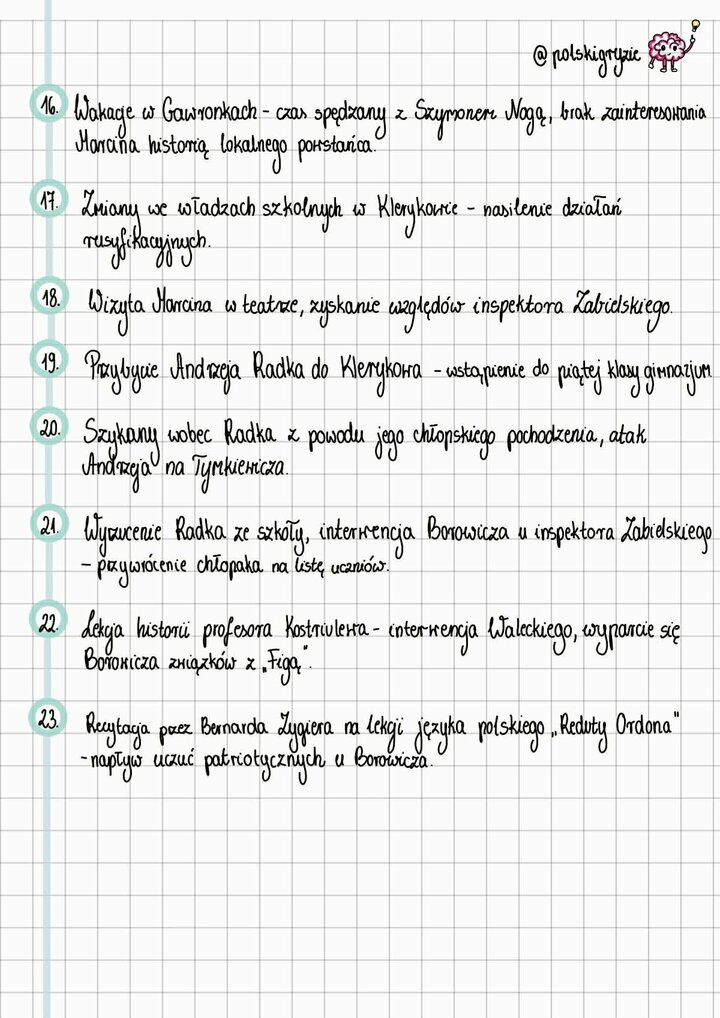 @polskigryzie
16. Wakacje w Gawronkach - czas spędzany z Szymonem Nogą, brak zainteresowania
Marcina historią lokalnego powstańca.
17. Zmiany we władzach szkolnych w Klerykowie - nasilenie działań
rusyfikacyjnych.
18. Wizyta Marcina w teatrze, zyskanie względów inspektora Zabielskiego.
19. Przybycie Andrzeja Radka do Klerykowa - wstąpienie do piątej klasy gimnazjum
20. Szykany wobec Radka z powodu jego chłopskiego pochodzenia, atak
Andrzeja na Tymkiewicza.
21. Wyrzucenie Radka ze szkoły, interwencja Borowicza u inspektora Zabielskiego
- przywrócenie chłopaka na listę uczniów.
22. Lekcja historii profesora Kostriulewa - interwencja Waleckiego, wyparcie się
Borowicza związków z „Figą".
23. Recytacja przez Bernarda Zygiera na lekcji języka polskiego „Reduty Ordona"
- napływ uczuć patriotycznych u Borowicza.